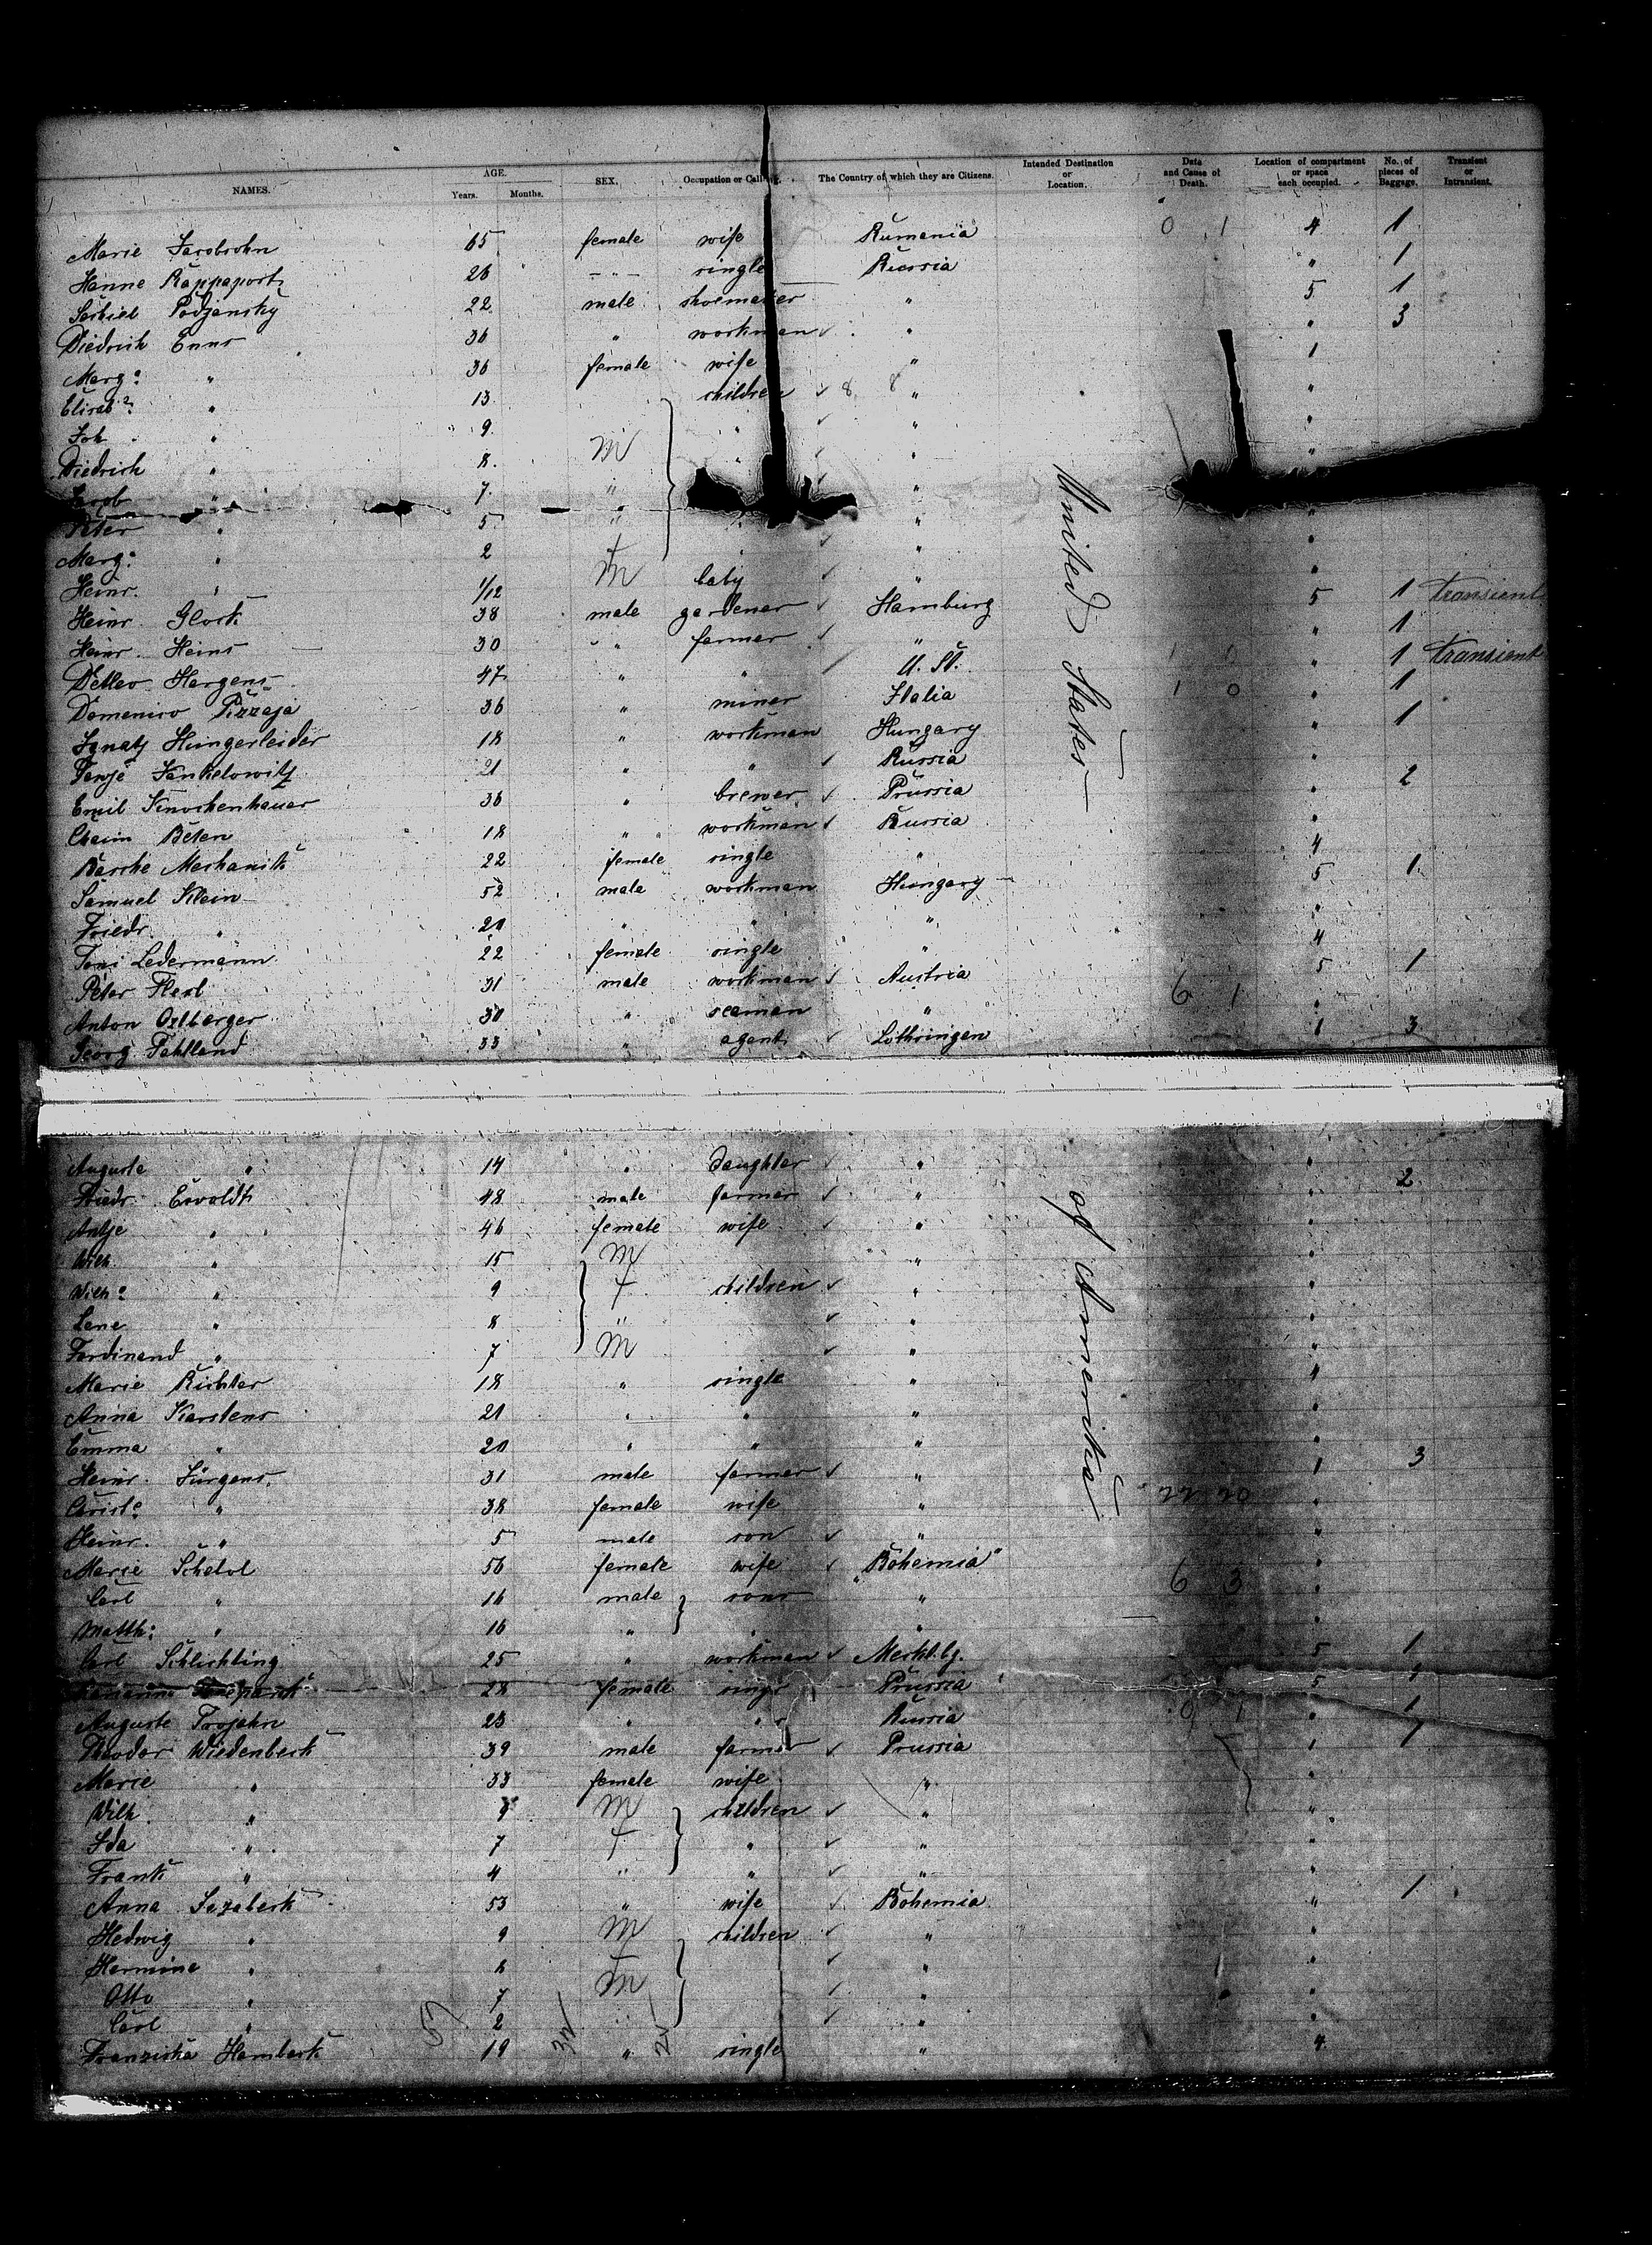 NAMES. AGE. Years. Months. SEX. Occupation or Calling. The Country of which they are Citizens. Intended Destination or Location. Date and Cause of Death. Location of compartment or space each occupied. No. of pieces of Baggage. Transient or Intransient.
Marie Jacobsohn 65 female wife Rumania 0 1 4 1
Hanne Rappaport 26 -"- single Russia " 1
22 male shoemaker " 5 1
Diedrich Enns 36 " workman " " 3
Marg: " 36 female wife " 1
Elisab: " 13 children 8 8 " "
Joh " 9 " " "
Diedrich " 8 M " " "
7 " "
Peter " 5 " " "
Marg: " 2 f " " "
Heinr. " 1/12 M baby " "
Heinr. Glock 38 male gardener Hamburg 5 1 transient
Heinr. Heins 30 " farmer " " 1
Detlev Hargens 47 " " U. St. " 1 transient
Domenico 36 " miner Italia 1 0 " 1
Ignatz Hungerleider 18 " workman Hungary " 1
Jankelowitz 21 " " Russia "
Emil Knochenhauer 36 " brewer Prussia " 2
Chaim Beten 18 " workman Russia "
Basche Mechanik 22 female single " 4
Samuel Klein 52 male workman Hungary 5 1
Friedr. " 20 " " " "
Toni Ledermann 22 female single " 4
Peter 31 male workman Austria 5 1
Anton 30 " seaman " 6 1 "
Georg 33 " agent Lothringen 1 3
United States
Auguste " 14 " daughter " "
Friedr. Ewoldt 48 male farmer " " 2
Antje " 46 female wife " "
Wilh. " 15 M " "
Wilh: " 9 f children " "
Lene " 8 " " "
Ferdinand " 7 M " "
Marie Richter 18 " single " 4
Anna Karstens 21 " " " "
Emma " 20 " " " "
Heinr. Jürgens 31 male farmer " 1 3
Christ: " 38 female wife " 22 20 "
Heinr. " 5 male son " "
Marie 56 female wife "Bohemia" 6 3 "
Carl " 16 male sons " "
Matth: " 16 " " " "
of America
Carl Schlichting 25 " workman Mecklbg. 5 1
28 female single Prussia 5 1
Auguste Trojahn 23 " " Russia 0 1 " 1
Theodor Wiedenbeck 39 male farmer Prussia 1 7
Marie " 33 female wife " "
Wilh. " 9 M children " "
Ida " 7 f " " "
Frank " 4 " " " "
Anna 53 " wife Bohemia " 1
Hedwig " 9 M children " "
Hermine " 8 f " "
Otto " 7 M " "
Carl " 2 " " "
Franziska Hambeck 19 " single " 4